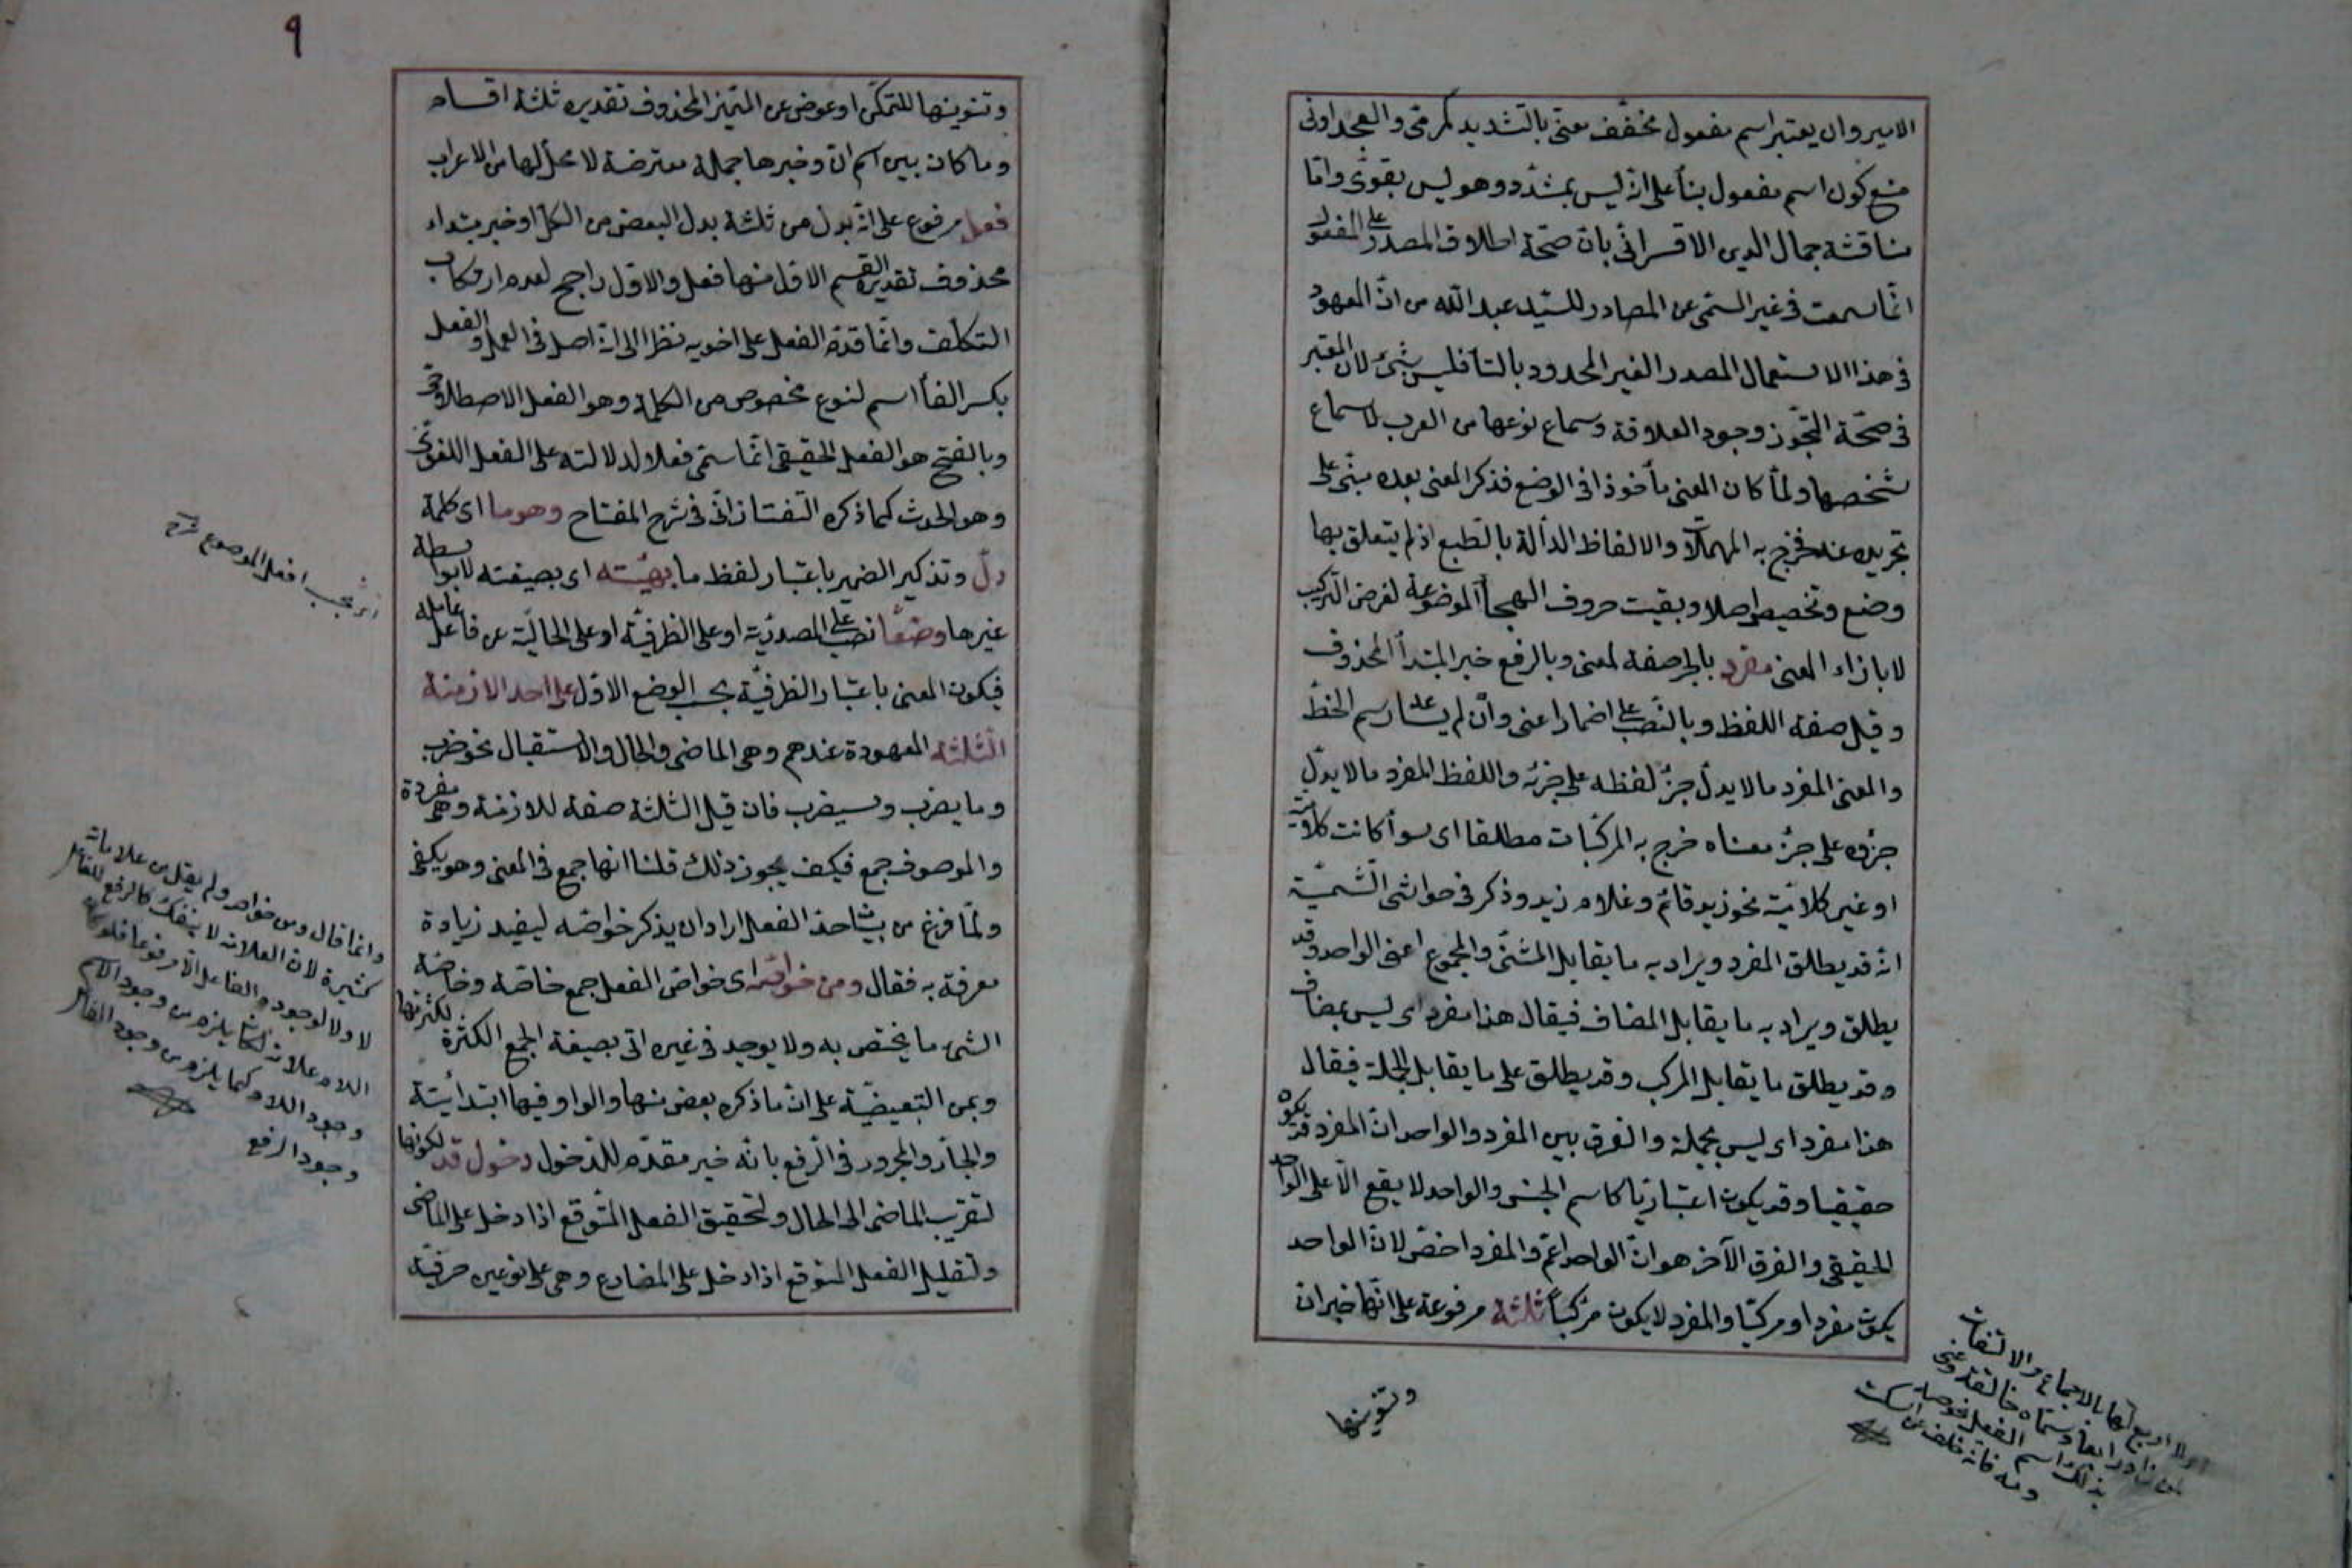 الامير وان يعتبر اسم مفعول مخفف معنى بالتشديد كمرمى والعجد اونى
منع كون اسم مفعول بنأ على انه ليس بمشدد وهو ليس بقوى واما
مناقشة جمال الدين الاقسرائى بان صحة اطلاق المصدر على المفعول
انما سمعت فى غير المسمى عن المصادر للسيد عبد الله من ان المعهود
فى هذا الاستعمال المصدر الغير المحدود بالتأ فليس بشئ لان المعتبر
فى صحة التجوز وجود العلاقة وسماع نوعها من العرب لا سماع
شخصها ولمأ كان المعنى مأخوذا فى الوضع فذكر المعنى بعده مبنى على
تجريده عنه فخرج به المهملات والالفاظ الدالة بالطبع اذ لم يتعلق بها
وضع وتخصيص اصلا وبقيت حروف الهجأ الموضوعة لغرض التركيب
لا بازاء المعنى مفرد بالجر صفة لمعنى وبالرفع خبر المبتدأ المحذوف
وقيل صفة اللفظ وبالنصب على اضمار اعنى وان لم يساعد رسم الخط
والمعنى المفرد ما لا يدل جزؤ لفظه على جزئه واللفظ المفرد ما لا يدل
جزؤه على جزء معناه خرج به المركبات مطلقا اى سوأ كانت كلامية
او غير كلامية نحو زيد قائم وغلام زيد وذكر فى حواشى الشمسية
انه قد يطلق المفرد ويراد به ما يقابل المثنى والمجموع اعنى الواحد وقد
يطلق ويراد به ما يقابل المضاف فيقال هذا مفرد اى ليس بمضاف
وقد يطلق ما يقابل المركب وقد يطلق على ما يقابل الجملة فيقال
هذا مفرد اى ليس بجملة والفرق بين المفرد والواحد ان المفرد قد يكون
حقيقيا وقد يكون اعتباريا كاسم الجنس والواحد لا يقع الا على الواحد
الحقيقى والفرق الآخر هو ان الواحد اعم والمفرد اخص لان الواحد
يكون مفردا ومركبا والمفرد لا يكون مركبا ثلثة مرفوعة على انها خبر ان
بالاجماع والالتفات
وتنوينها
٩
وتنوينها للتمكن او عوض عن التميز المحذوف تقديره ثلثة اقسام
وما كان بين اسم ان وخبرها جملة معترضة لا محل لها من الاعراب
فعل مرفوع على انه بدل من ثلثة بدل البعض من الكل او خبر مبتداء
محذوف تقديره القسم الاول منها فعل والاول راجح لعدم ارتكاب
التكلف وانما قدم الفعل على اخويه نظرا الى انه اصل فى العمل والفعل
بكسر الفأ اسم لنوع مخصوص من الكلمة وهو الفعل الاصطلاحى
وبالفتح هو الفعل الحقيقى انما سمى فعلا لدلالته على الفعل اللغوى
وهو الحدث كما ذكره التفتازانى فى شرح المفتاح وهو ما اى كلمة
دل وتذكير الضمير باعتبار لفظ ما بهيئته اى بصيغته لا بواسطة
غيرها وضعا نصب على المصدرية او على الظرفية او على الحالية عن فاعل عامله
فيكون المعنى باعتبار الظرفية بحسب الوضع الاول على احد الازمنة
الثلثة المعهودة عندهم وهى الماضى والحال والاستقبال نحو ضرب
وما يضرب وسيضرب فان قيل الثلثة صفة للازمنة وهى مفردة
والموصوف جمع فيكف يجوز ذلك قلنا انها جمع فى المعنى وهو يكفى
ولما فرغ من بيان حد الفعل اراد ان يذكر خواصه ليفيد زيادة
معرفة به فقال ومن خواصه اى خواص الفعل جمع خاصة وخاصة
الشئ ما يختص به ولا يوجد فى غيره اتى بصيغة الجمع الكثرة لكثرتها
وبمن التبعيضية على ان ما ذكره بعض منها والواو فيها ابتدائية
والجار والمجرور فى الرفع بانه خبر مقدم للدخول دخول قد لكونها
لتقريب الماضى الى الحال ولتحقيق الفعل المتوقع اذا دخل على الماضى
ولتقليل الفعل المتوقع اذا دخل على المضارع وهى على نوعين حرفية
وانما قال ومن خواصه ولم يقل من علاماته
كثيرة لان العلامة لا ينفك كالرفع للفاعل
وجود اللام وكما يلزم من وجود الفاعل
وجود الرفع